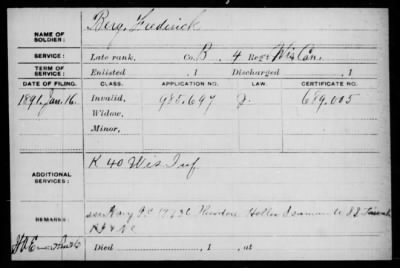 NAME OF SOLDIER: Berg, Frederick
SERVICE: Late rank, Co. B, 4 Reg't Wis Cav.
TERM OF SERVICE: Enlisted , 1 Discharged , 1
DATE OF FILING. CLASS. APPLICATION NO. LAW. CERTIFICATE NO.
1891, Jan. 16. Invalid, 985.697 J. 689.005
Widow,
Minor,
ADDITIONAL SERVICES: K 40 Wis Inf
REMARKS: Navy Theodore Seaman
Died , 1 , at